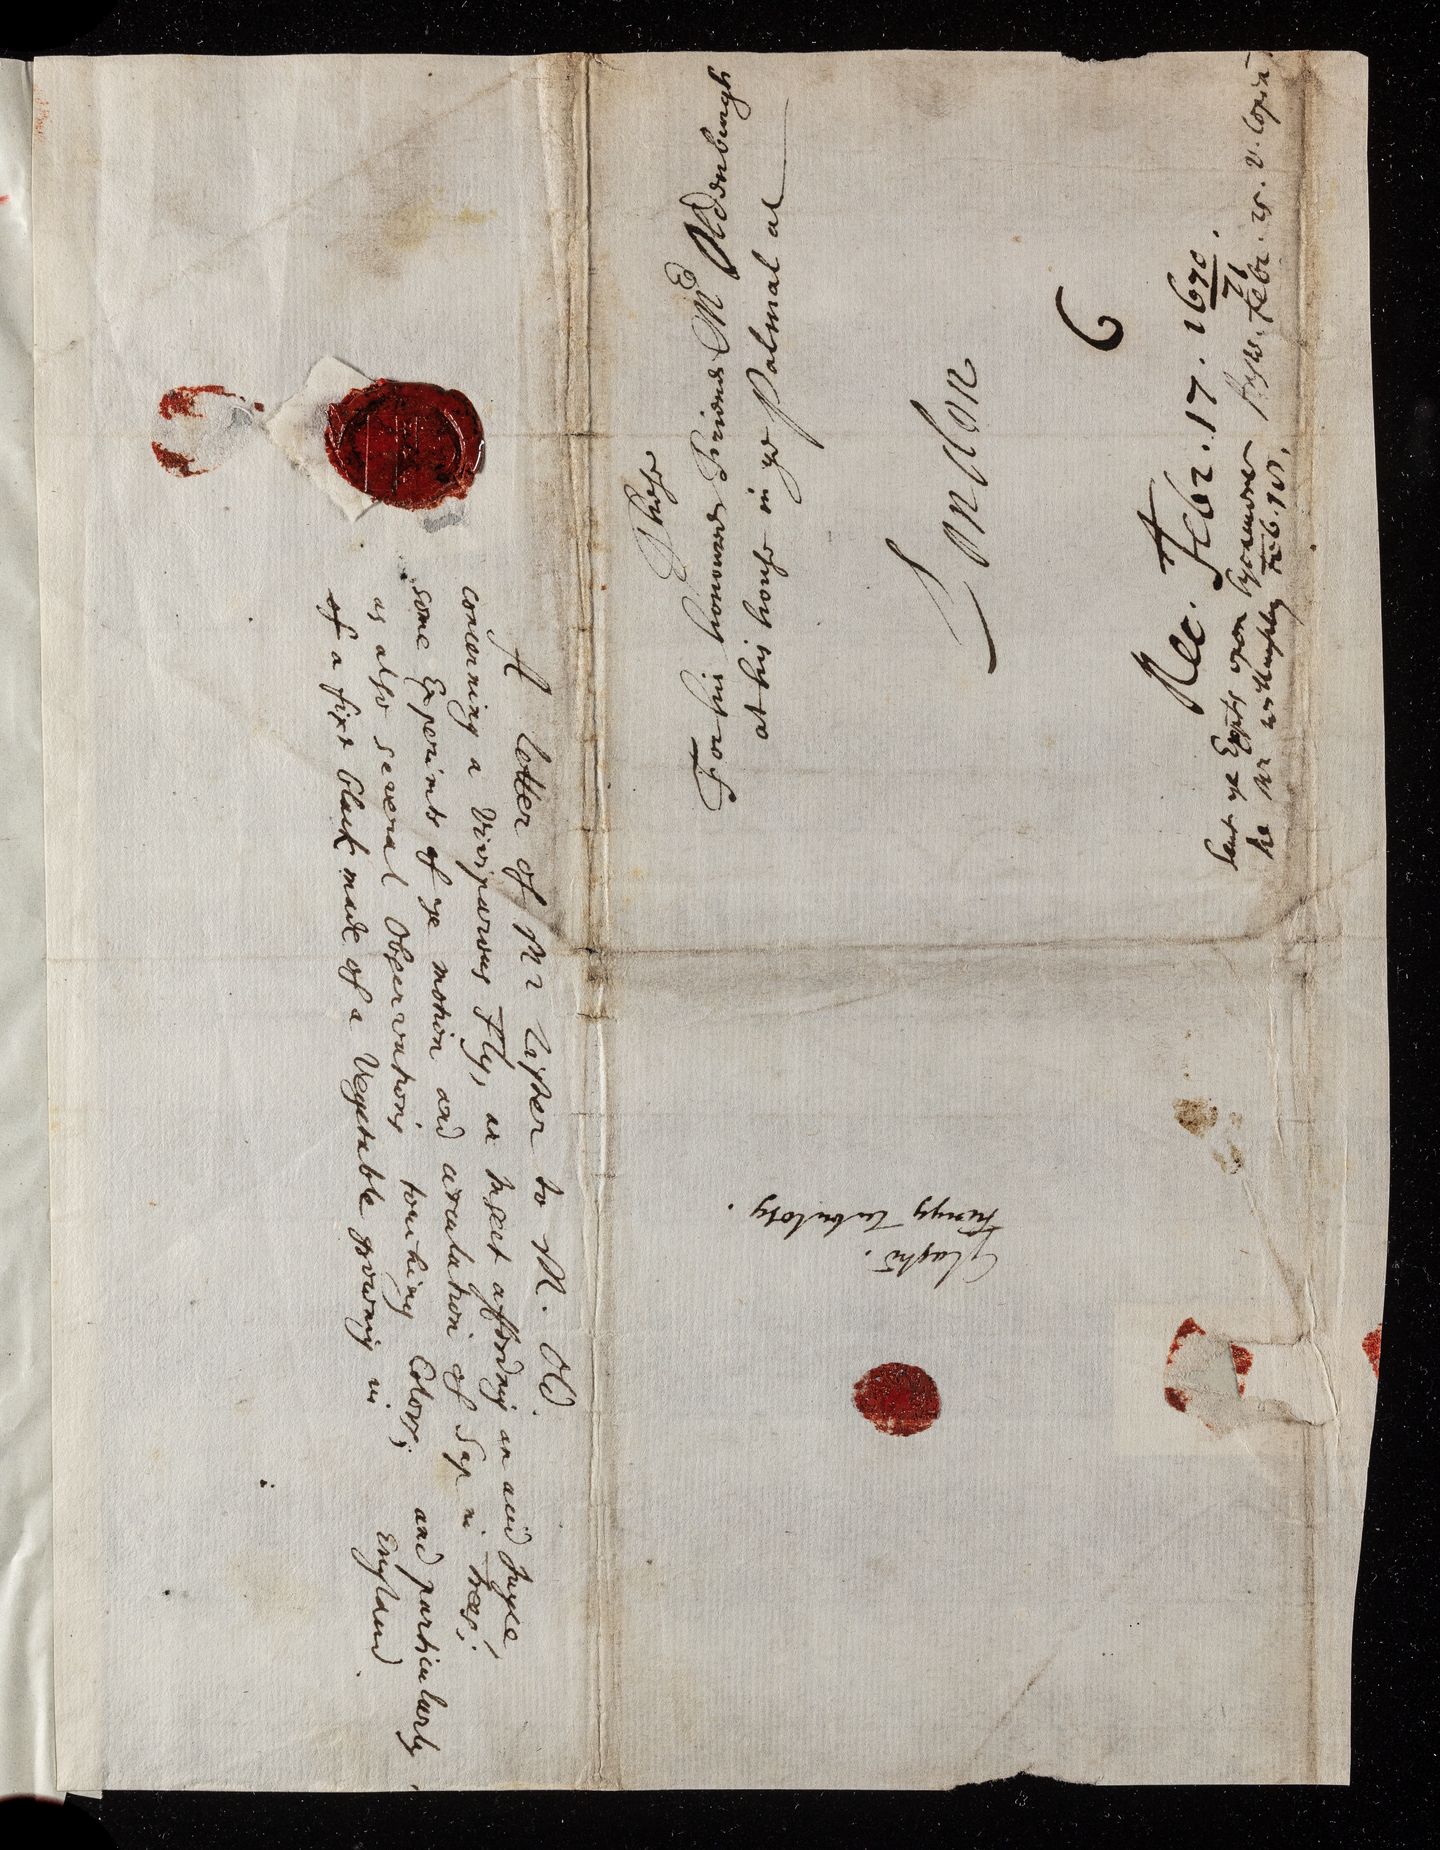 These
For his honoured Friend Mr Oldenburgh
at his house in ye Palmal at
London
6
Rec. Febr. 17. 1670/71.
Sent ye Expts upon Sycamore
he Mr Willughby Feb. 18.
Febr. 25. v. Copiā
A letter of Mr Lyster to M. Old.
concerning a Viviparous Fly, an Insect affording an acid juyce,
some Experimts of ye motion and circulation of Sap in trees;
as also several Observations touching Colors; and particularly
of a fixt Black made of a Vegetable growing in England.
Fungy tubulosy.